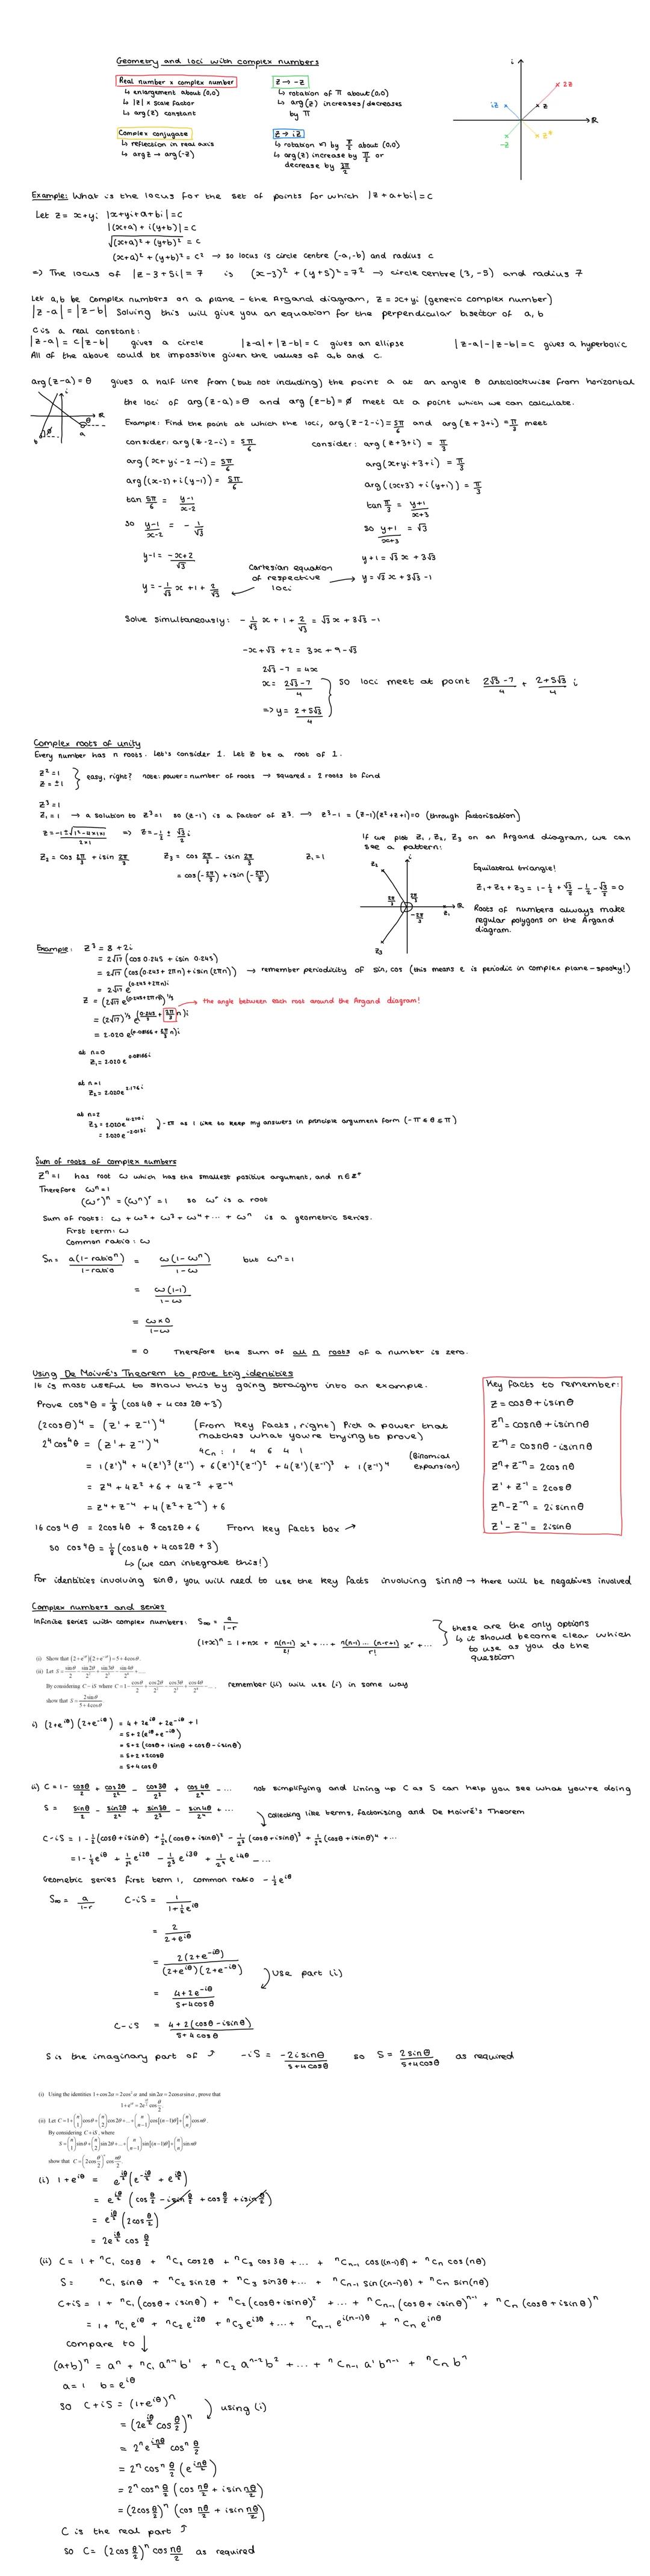 Geometry and loci with complex numbers
Real number × complex number
↳ enlargement about (0,0)
↳ |z| × scale factor
↳ arg(z) constant
z → -z
↳ rotation of π about (0,0)
↳ arg(z) increases/decreases
by π
Complex conjugate
↳ reflection in real axis
↳ argz → arg(-z)
z → iz
↳ rotation by π/2 about (0,0)
↳ arg(z) increase by π/2 or
decrease by 3π/2
i
2z
iz
z
R
-z
z*
Example: What is the locus for the set of points for which |z+a+bi|=c
Let z = x+yi |x+yi+a+bi|=c
|(x+a) + i(y+b)| = c
√((x+a)² + (y+b)²) = c
(x+a)² + (y+b)² = c² → so locus is circle centre (-a,-b) and radius c
=> The locus of |z-3+5i| = 7 is (x-3)² + (y+5)² = 7² → circle centre (3,-5) and radius 7
Let a,b be complex numbers on a plane - the Argand diagram, z = x+yi (generic complex number)
|z-a| = |z-b| Solving this will give you an equation for the perpendicular bisector of a, b
c is a real constant:
|z-a| = c|z-b| gives a circle |z-a|+|z-b| = c gives an ellipse |z-a|-|z-b| = c gives a hyperbolic
All of the above could be impossible given the values of a,b and c.
arg(z-a) = θ gives a half line from (but not including) the point a at an angle θ anticlockwise from horizontal
the loci of arg(z-a)=θ and arg(z-b)=ø meet at a point which we can calculate.
i
R
θ
a
ø
b
Example: Find the point at which the loci, arg(z-2-i) = 5π/6 and arg(z+3+i) = π/3 meet
consider: arg(z-2-i) = 5π/6 consider: arg(z+3+i) = π/3
arg(x+yi-2-i) = 5π/6 arg(x+yi+3+i) = π/3
arg((x-2)+i(y-1)) = 5π/6 arg((x+3)+i(y+1)) = π/3
tan 5π/6 = (y-1)/(x-2) tan π/3 = (y+1)/(x+3)
so (y-1)/(x-2) = -1/√3 so (y+1)/(x+3) = √3
y-1 = (-x+2)/√3 y+1 = √3x + 3√3
Cartesian equation
of respective
loci
y = -1/√3 x + 1 + 2/√3 y = √3x + 3√3 - 1
Solve simultaneously: -1/√3 x + 1 + 2/√3 = √3x + 3√3 - 1
-x + √3 + 2 = 3x + 9 - √3
2√3 - 7 = 4x
x = (2√3-7)/4
=> y = (2+5√3)/4
so loci meet at point (2√3-7)/4 + (2+5√3)/4 i
Complex roots of unity
Every number has n roots. Let's consider 1. Let z be a root of 1.
z² = 1
z = ±1
easy, right? note: power = number of roots → squared = 2 roots to find
z³ = 1
z₁ = 1 → a solution to z³=1 so (z-1) is a factor of z³. → z³-1 = (z-1)(z²+z+1)=0 (through factorisation)
z = (-1±√(1²-4×1×1))/(2×1) => z = -1/2 ± √3/2 i
z₂ = cos 2π/3 + isin 2π/3 z₃ = cos 2π/3 - isin 2π/3 z₁ = 1
= cos(-2π/3) + isin(-2π/3)
If we plot z₁, z₂, z₃ on an Argand diagram, we can
see a pattern:
i
z₂
2π/3
2π/3
R
z₁
-2π/3
z₃
Equilateral triangle!
z₁+z₂+z₃ = 1-1/2+√3/2-1/2-√3/2 = 0
Roots of numbers always make
regular polygons on the Argand
diagram.
Example: z³ = 8 + 2i
= 2√17 (cos 0.245 + isin 0.245)
= 2√17 (cos(0.245+2πn)+isin(2πn)) → remember periodicity of sin, cos (this means e is periodic in complex plane - spooky!)
= 2√17 e^(0.245+2πn)i
z = (2√17 e^(0.245+2πn)i)^1/3
→ the angle between each root around the Argand diagram!
= (2√17)^1/3 e^(0.245/3 + 2π/3 n)i
= 2.020 e^(0.08166+2π/3 n)i
at n=0
z₁ = 2.020 e^0.08166i
at n=1
z₂ = 2.020e^2.176i
at n=2
z₃ = 2.020e^4.270i
= 2.020e^-2.013i
-2π as I like to keep my answers in principle argument form (-π ≤ θ ≤ π)
Sum of roots of complex numbers
zⁿ=1 has root ω which has the smallest positive argument, and n∈Z⁺
Therefore ωⁿ = 1
(ωʳ)ⁿ = (ωⁿ)ʳ = 1 so ωʳ is a root
Sum of roots: ω + ω² + ω³ + ω⁴ + ... + ωⁿ is a geometric series.
First term: ω
Common ratio: ω
Sn = a(1-ratioⁿ)/(1-ratio) = ω(1-ωⁿ)/(1-ω) but ωⁿ = 1
= ω(1-1)/(1-ω)
= ω×0/(1-ω)
= 0 Therefore the sum of all n roots of a number is zero.
Using De Moivré's Theorem to prove trig identities
It is most useful to show this by going straight into an example.
Prove cos⁴θ = 1/8 (cos4θ + 4cos2θ + 3)
(2cosθ)⁴ = (z¹ + z⁻¹)⁴ (From key facts, right) Pick a power that
matches what you're trying to prove)
2⁴cos⁴θ = (z¹ + z⁻¹)⁴
⁴Cn : 1 4 6 4 1
= 1(z¹)⁴ + 4(z¹)³(z⁻¹) + 6(z¹)²(z⁻¹)² + 4(z¹)(z⁻¹)³ + 1(z⁻¹)⁴ (Binomial
expansion)
= z⁴ + 4z² + 6 + 4z⁻² + z⁻⁴
= z⁴ + z⁻⁴ + 4(z²+z⁻²) + 6
16cos⁴θ = 2cos4θ + 8cos2θ + 6 From key facts box ↗
so cos⁴θ = 1/8 (cos4θ + 4cos2θ + 3)
↳ (we can integrate this!)
For identities involving sinθ, you will need to use the key facts involving sinnθ → there will be negatives involved
Key facts to remember:
z = cosθ + isinθ
zⁿ = cosnθ + isinnθ
z⁻ⁿ = cosnθ - isinnθ
zⁿ + z⁻ⁿ = 2cosnθ
z¹ + z⁻¹ = 2cosθ
zⁿ - z⁻ⁿ = 2isinnθ
z¹ - z⁻¹ = 2isinθ
Complex numbers and series
Infinite series with complex numbers: S∞ = a/(1-r)
(1+x)ⁿ = 1 + nx + n(n-1)/2! x² + ... + n(n-1)...(n-r+1)/r! xʳ + ...
these are the only options
↳ it should become clear which
to use as you do the
question
(i) Show that (2+e^iθ)(2+e^-iθ) = 5+4cosθ.
(ii) Let S = sinθ/2 - sin2θ/2² + sin3θ/2³ - sin4θ/2⁴ + ...
By considering C - iS where C = 1 - cosθ/2 + cos2θ/2² - cos3θ/2³ + cos4θ/2⁴ - ... ,
show that S = 2sinθ/(5+4cosθ).
remember (ii) will use (i) in some way
i) (2+e^iθ)(2+e^-iθ) = 4 + 2e^iθ + 2e^-iθ + 1
= 5 + 2(e^iθ + e^-iθ)
= 5 + 2(cosθ + isinθ + cosθ - isinθ)
= 5 + 2×2cosθ
= 5 + 4cosθ
ii) C = 1 - cosθ/2 + cos2θ/2² - cos3θ/2³ + cos4θ/2⁴ - ... not simplifying and lining up C as S can help you see what you're doing
S = sinθ/2 - sin2θ/2² + sin3θ/2³ - sin4θ/2⁴ + ...
collecting like terms, factorising and De Moivré's Theorem
C-iS = 1 - 1/2(cosθ+isinθ) + 1/2²(cosθ+isinθ)² - 1/2³(cosθ+isinθ)³ + 1/2⁴(cosθ+isinθ)⁴ + ...
= 1 - 1/2 e^iθ + 1/2² e^i2θ - 1/2³ e^i3θ + 1/2⁴ e^i4θ - ...
Geometric series first term 1, common ratio -1/2 e^iθ
S∞ = a/(1-r) C-iS = 1/(1+1/2 e^iθ)
= 2/(2+e^iθ)
= 2(2+e^-iθ)/((2+e^iθ)(2+e^-iθ))
use part (i)
= (4+2e^-iθ)/(5+4cosθ)
C-iS = (4+2(cosθ-isinθ))/(5+4cosθ)
S is the imaginary part of ↗ -iS = -2isinθ/(5+4cosθ) so S = 2sinθ/(5+4cosθ) as required
(i) Using the identities 1+cos2α = 2cos²α and sin2α = 2cosαsinα, prove that
1+e^iθ = 2e^(iθ/2) cos θ/2.
(ii) Let C = 1 + (n 1)cosθ + (n 2)cos2θ + ... + (n n-1)cos[(n-1)θ] + (n n)cosnθ.
By considering C + iS, where
S = (n 1)sinθ + (n 2)sin2θ + ... + (n n-1)sin[(n-1)θ] + (n n)sinnθ
show that C = (2cos θ/2)ⁿ cos nθ/2.
(i) 1 + e^iθ = e^(iθ/2) (e^(-iθ/2) + e^(iθ/2))
= e^(iθ/2) (cos θ/2 - isin θ/2 + cos θ/2 + isin θ/2)
= e^(iθ/2) (2cos θ/2)
= 2e^(iθ/2) cos θ/2
(ii) C = 1 + ⁿC₁ cosθ + ⁿC₂ cos2θ + ⁿC₃ cos3θ + ... + ⁿCn-1 cos((n-1)θ) + ⁿCn cos(nθ)
S = ⁿC₁ sinθ + ⁿC₂ sin2θ + ⁿC₃ sin3θ + ... + ⁿCn-1 sin((n-1)θ) + ⁿCn sin(nθ)
C+iS = 1 + ⁿC₁(cosθ+isinθ) + ⁿC₂(cosθ+isinθ)² + ... + ⁿCn-1(cosθ+isinθ)ⁿ⁻¹ + ⁿCn(cosθ+isinθ)ⁿ
= 1 + ⁿC₁e^iθ + ⁿC₂e^i2θ + ⁿC₃e^i3θ + ... + ⁿCn-1 e^i(n-1)θ + ⁿCn e^inθ
compare to ↓
(a+b)ⁿ = aⁿ + ⁿC₁ aⁿ⁻¹b¹ + ⁿC₂ aⁿ⁻²b² + ... + ⁿCn-1 a¹bⁿ⁻¹ + ⁿCn bⁿ
a = 1 b = e^iθ
so C+iS = (1+e^iθ)ⁿ
using (i)
= (2e^(iθ/2) cos θ/2)ⁿ
= 2ⁿ e^(inθ/2) cosⁿ θ/2
= 2ⁿ cosⁿ θ/2 (e^(inθ/2))
= 2ⁿ cosⁿ θ/2 (cos nθ/2 + isin nθ/2)
= (2cos θ/2)ⁿ (cos nθ/2 + isin nθ/2)
C is the real part ↗
so C = (2cos θ/2)ⁿ cos nθ/2 as required